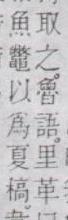 取之。魯語。里革
魚鼈以爲夏槁。